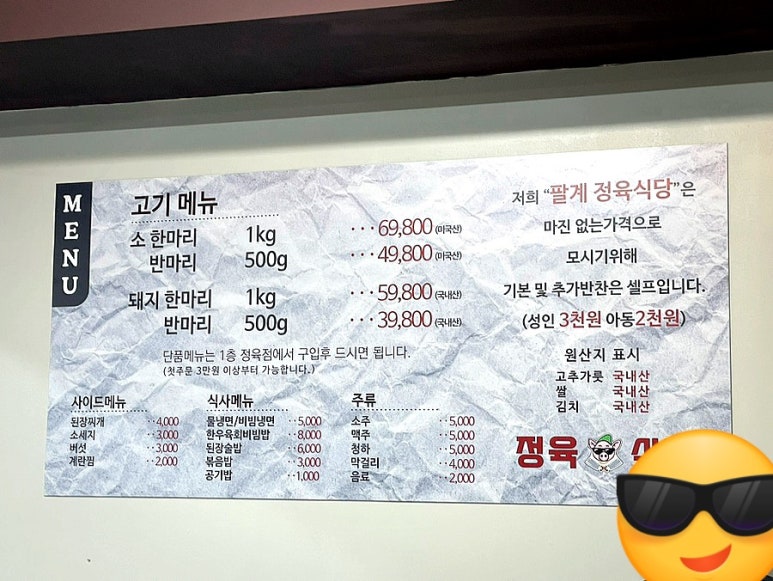 MENU
고기 메뉴
소 한마리 1kg ···69,800 (미국산)
반마리 500g ···49,800 (미국산)
돼지 한마리 1kg ···59,800 (국내산)
반마리 500g ···39,800 (국내산)
단품메뉴는 1층 정육점에서 구입후 드시면 됩니다.
(첫주문 3만원 이상부터 가능합니다.)
사이드메뉴
된장찌개 ··4,000
소세지 ··3,000
버섯 ··3,000
계란찜 ··2,000
식사메뉴
물냉면/비빔냉면 ··5,000
한우육회비빔밥 ··8,000
된장술밥 ··6,000
볶음밥 ··3,000
공기밥 ··1,000
주류
소주 ··5,000
맥주 ··5,000
청하 ··5,000
막걸리 ··4,000
음료 ··2,000
저희 “팔계 정육식당”은
마진 없는가격으로
모시기위해
기본 및 추가반찬은 셀프입니다.
(성인 3천원 아동2천원)
원산지 표시
고추가룻 국내산
쌀 국내산
김치 국내산
정육